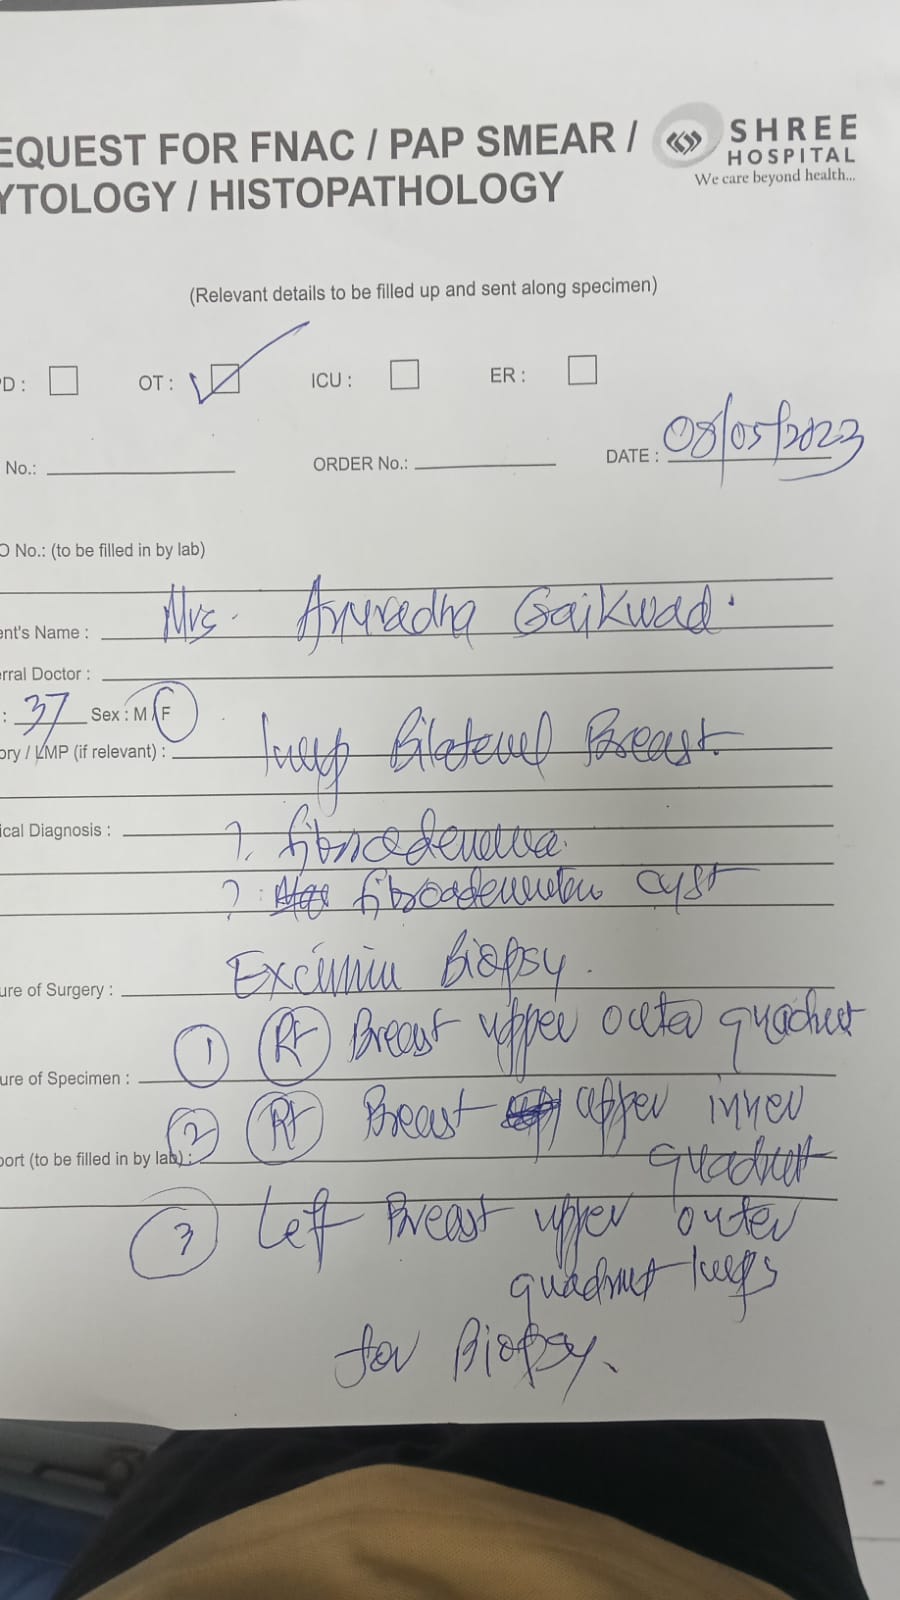 EQUEST FOR FNAC / PAP SMEAR /
YTOLOGY / HISTOPATHOLOGY
SHREE
HOSPITAL
We care beyond health...
(Relevant details to be filled up and sent along specimen)
PD : OT : ICU : ER :
No.: ORDER No.: DATE : 08/05/2023
O No.: (to be filled in by lab)
ent's Name : Mrs. Anuradha Gaikwad.
erral Doctor :
: 37 Sex : M / F
ory / LMP (if relevant) : Bilateral Breast
ical Diagnosis : ? fibroadenoma.
? cyst
ure of Surgery : Biopsy.
1 Rt Breast upper outer quadrant
ure of Specimen :
2 Rt Breast upper inner
port (to be filled in by lab) : quadrant
3 Left Breast upper outer
quadrant lumps
for Biopsy.